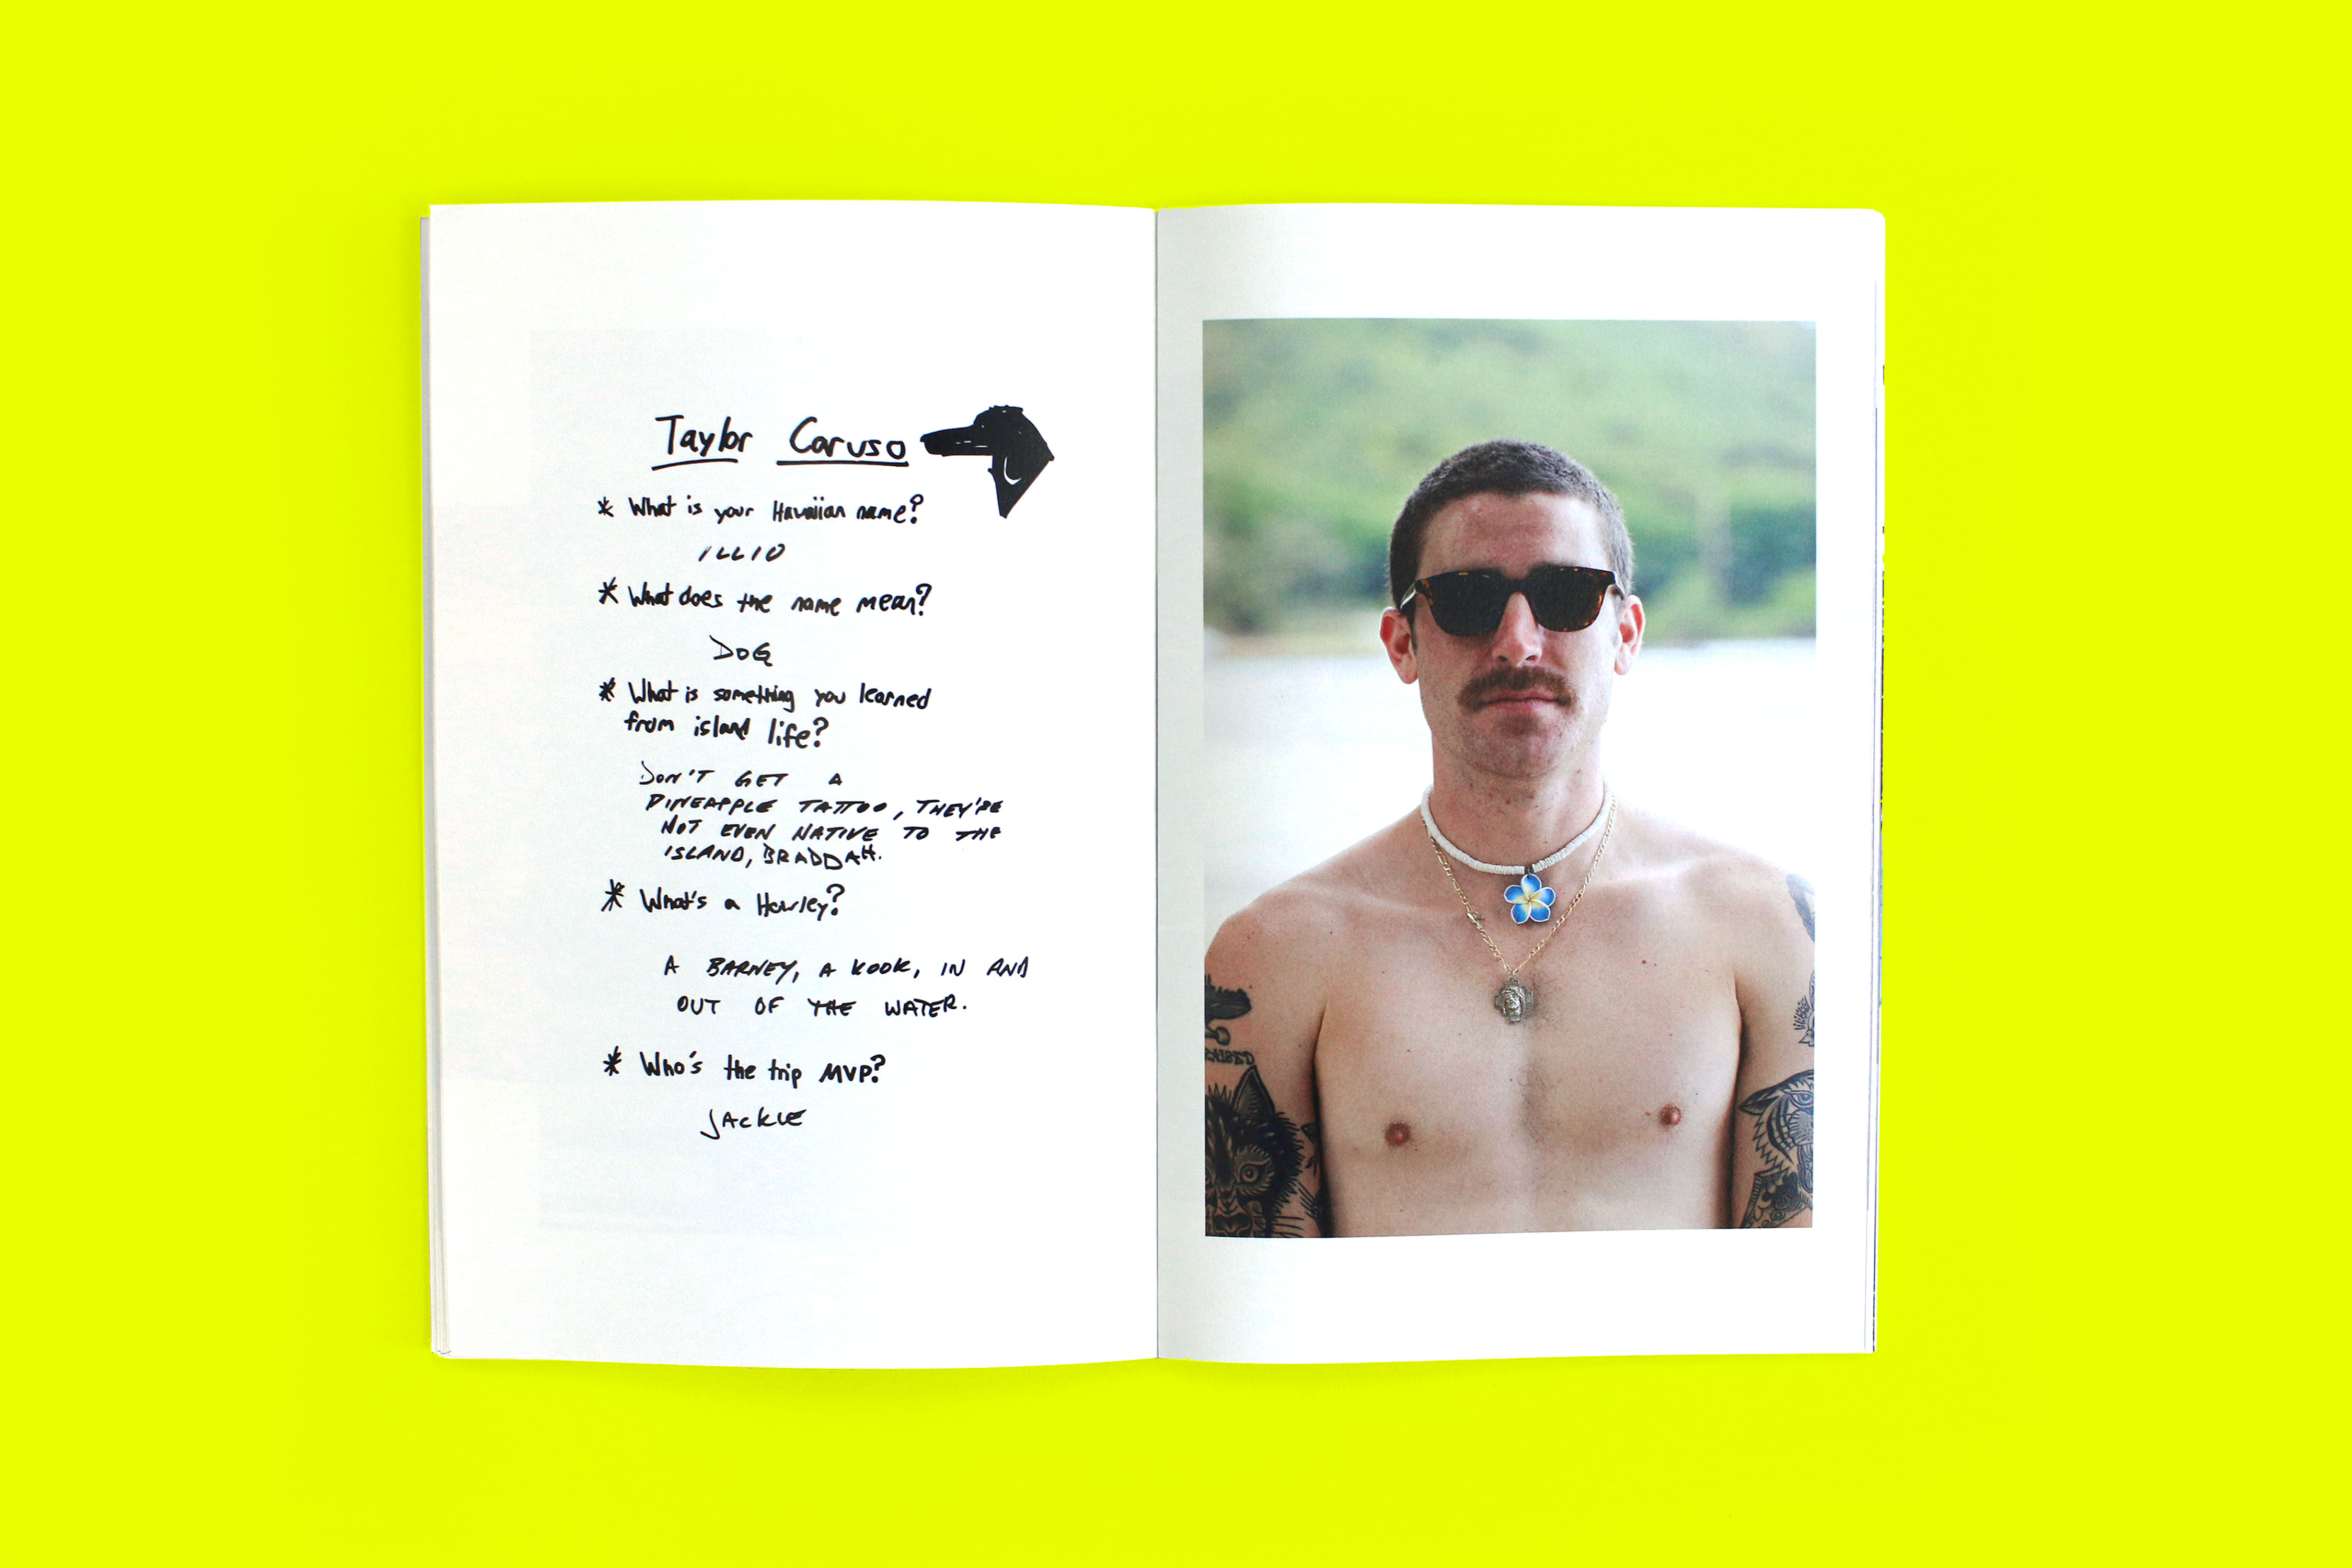 Taylor Caruso
* What is your Hawaiian name?
ILLIO
* What does the name mean?
DOG
* What is something you learned
from island life?
DON'T GET A
PINEAPPLE TATTOO, THEY'RE
NOT EVEN NATIVE TO THE
ISLAND, BRADDAH.
* What's a Howley?
A BARNEY, A KOOK, IN AND
OUT OF THE WATER.
* Who's the trip MVP?
JACKIE